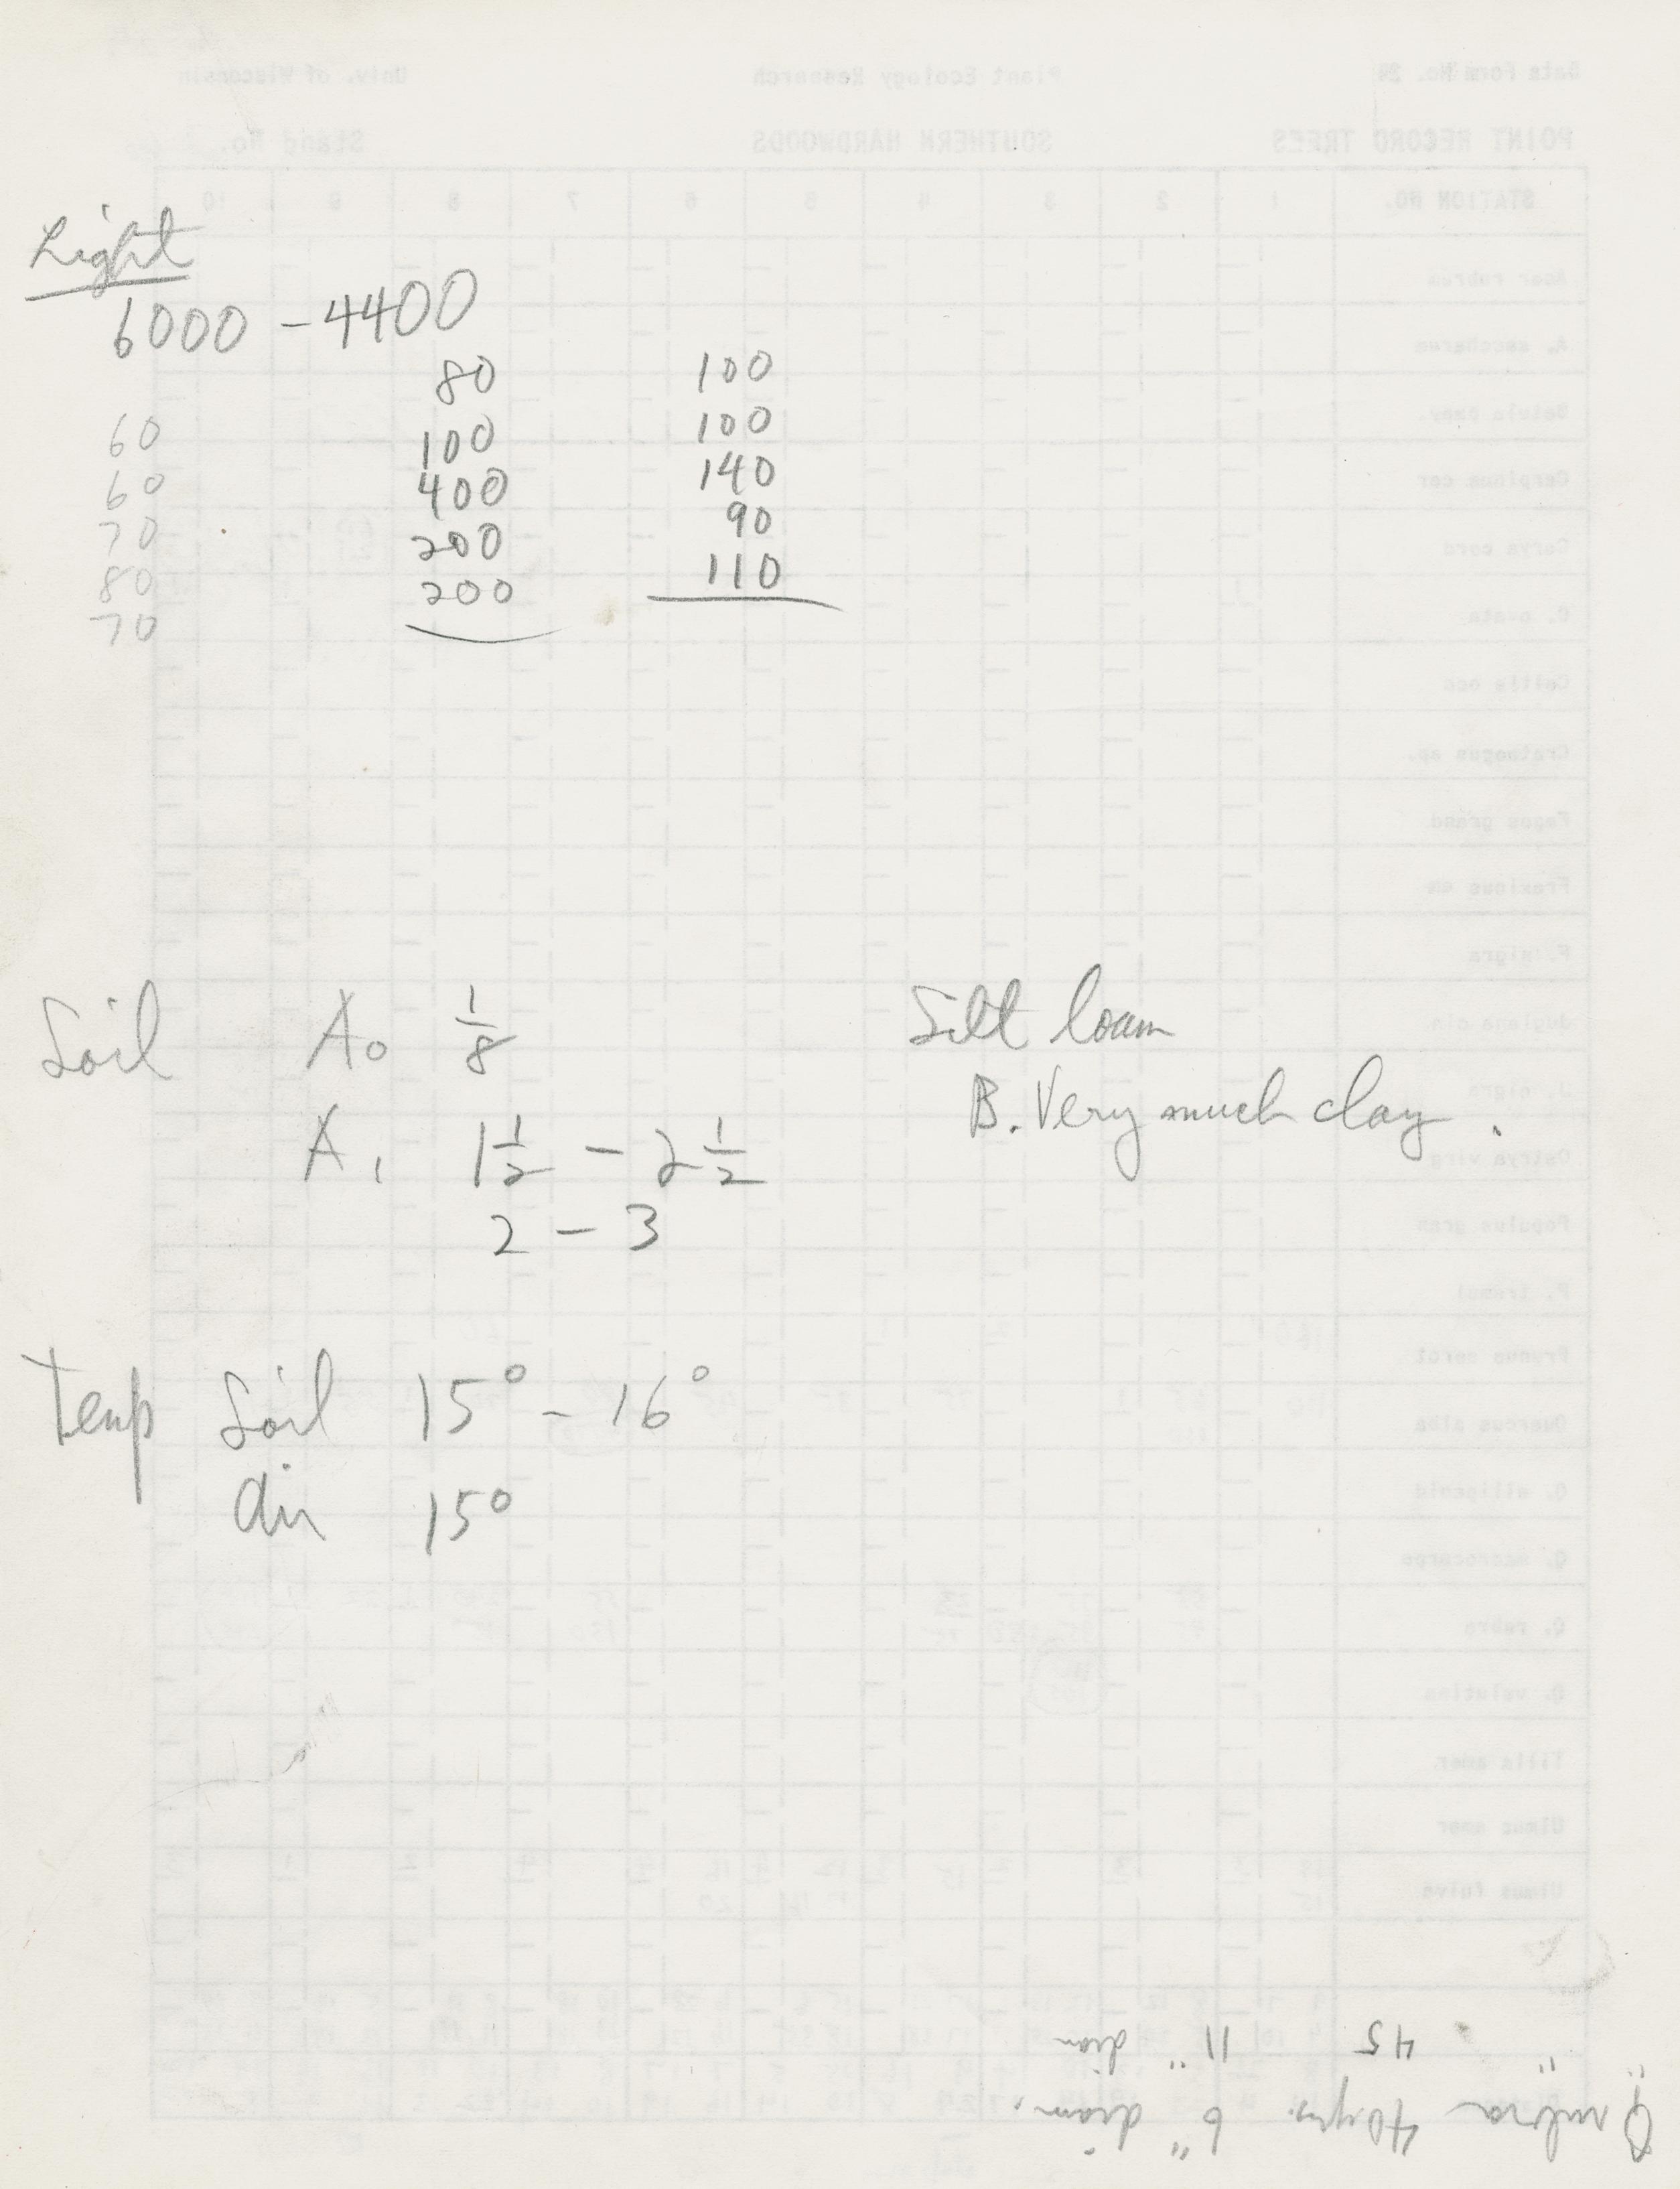 Light
6000 - 4400
80 100
60 100 100
60 400 140
70 200 90
80 200 110
70
Soil A0 1/8 Silt loam
B. Very much clay.
A1 1 1/2 - 2 1/2
2 - 3
Temp Soil 15° - 16°
air 15°
Q rubra 40 yrs. 6" diam.
" " 45 11" diam